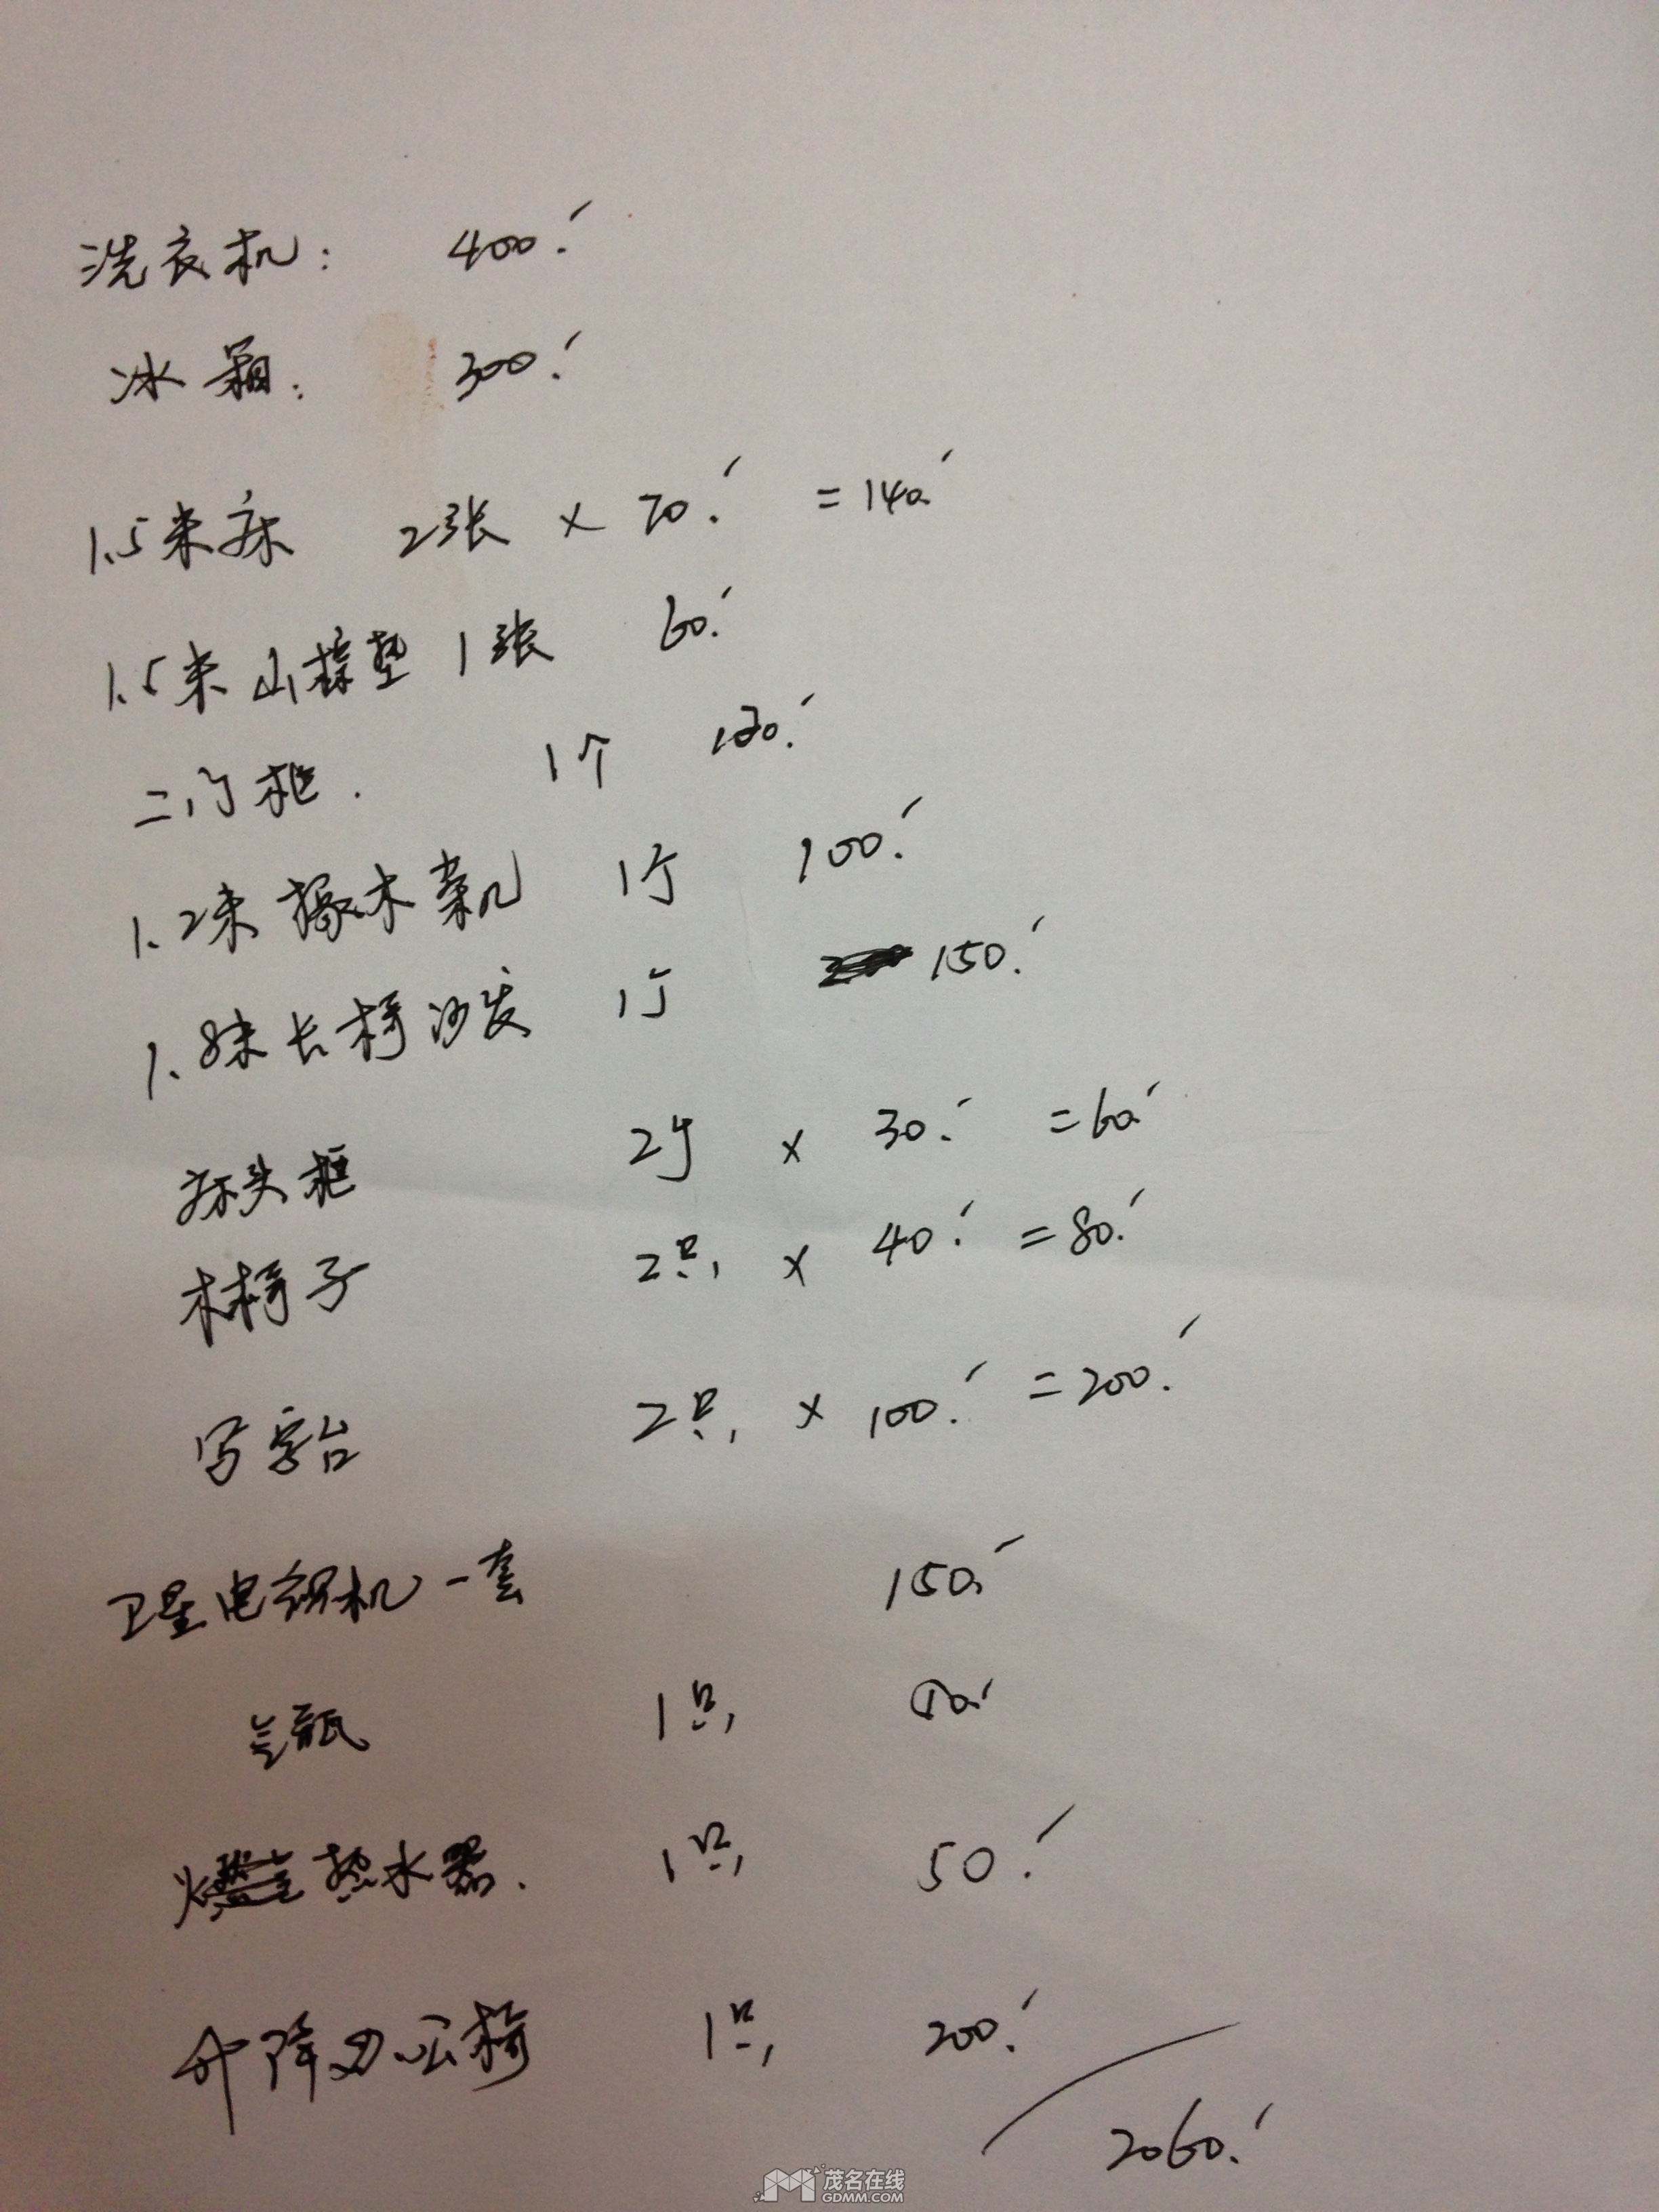 洗衣机: 400.
冰箱: 300.
1.5米床 2张 × 70. =140
1.5米山棕垫 1张 60.
二门柜. 1个 120.
1.2米橡木茶几 1个 100.
1.8米长椅沙发 1个 150.
床头柜 2个 × 30. =60
木椅子 2只, × 40. =80.
写字台 2只, × 100. =200.
卫星电视机一套 150
气瓶 1只, 50
热水器. 1只, 50.
升降办公椅 1只, 200.
2060.
茂名在线
GDMM.COM